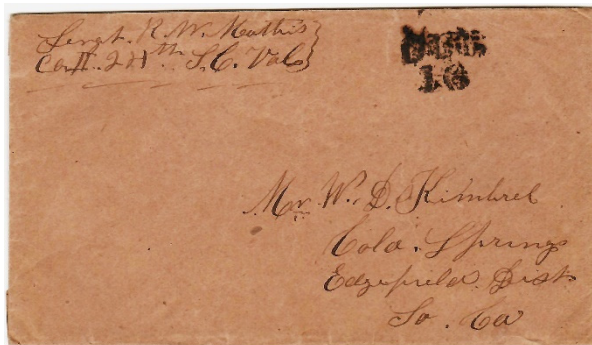 Sergt. R. W. Mathis
Co. H. 24th S. C. Vols
Due
10
Mr. W. D. Kimbrel
Cold. Springs
Edgefield. Dist
So. Ca